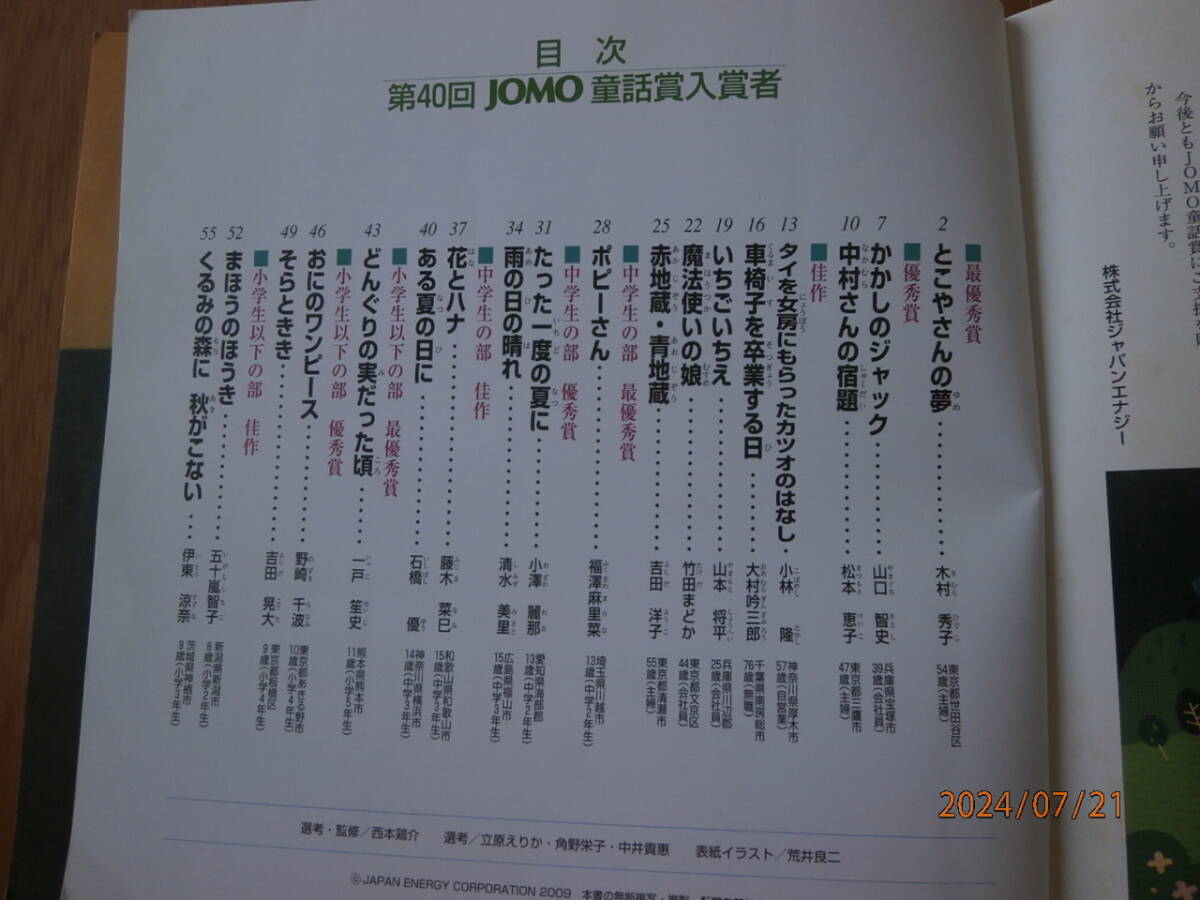 今後ともJOMO童話賞に
からお願い申し上げます。
株式会社ジャパンエナジー
目次
第40回 JOMO 童話賞入賞者
■最優秀賞
2 とこやさんの夢 木村 秀子 東京都世田谷区 54歳(主婦)
■優秀賞
7 かかしのジャック 山口 智史 兵庫県宝塚市 39歳(会社員)
10 中村さんの宿題 松本 恵子 東京都三鷹市 47歳(主婦)
■佳作
13 タイを女房にもらったカツオのはなし 小林 隆 神奈川県厚木市 57歳(自営業)
16 車椅子を卒業する日 大村吟三郎 千葉県南房総市 76歳(無職)
19 いちごいちえ 山本 将平 兵庫県川辺郡 25歳(会社員)
22 魔法使いの娘 竹田まどか 東京都文京区 44歳(会社員)
25 赤地蔵・青地蔵 吉田 洋子 東京都清瀬市 55歳(主婦)
■中学生の部 最優秀賞
28 ポピーさん 福澤麻里菜 埼玉県川越市 13歳(中学2年生)
■中学生の部 優秀賞
31 たった一度の夏に 小澤 麗那 愛知県海部郡 13歳(中学2年生)
34 雨の日の晴れ 清水 美里 広島県福山市 15歳(中学3年生)
■中学生の部 佳作
37 花とハナ 藤木 菜巳 和歌山県和歌山市 15歳(中学3年生)
40 ある夏の日に 石橋 優 神奈川県横浜市 14歳(中学3年生)
■小学生以下の部 最優秀賞
43 どんぐりの実だった頃 一戸 笙史 熊本県熊本市 11歳(小学5年生)
■小学生以下の部 優秀賞
46 おにのワンピース 野崎 千波 東京都あきる野市 10歳(小学4年生)
49 そらときき 吉田 晃大 東京都板橋区 9歳(小学4年生)
■小学生以下の部 佳作
52 まほうのほうき 五十嵐智子 新潟県新潟市 8歳(小学2年生)
55 くるみの森に 秋がこない 伊東 涼奈 茨城県神栖市 9歳(小学3年生)
選考・監修/西本鶏介 選考/立原えりか・角野栄子・中井貴惠 表紙イラスト/荒井良二
©JAPAN ENERGY CORPORATION 2009 本書の無断複写・複製
2024/07/21